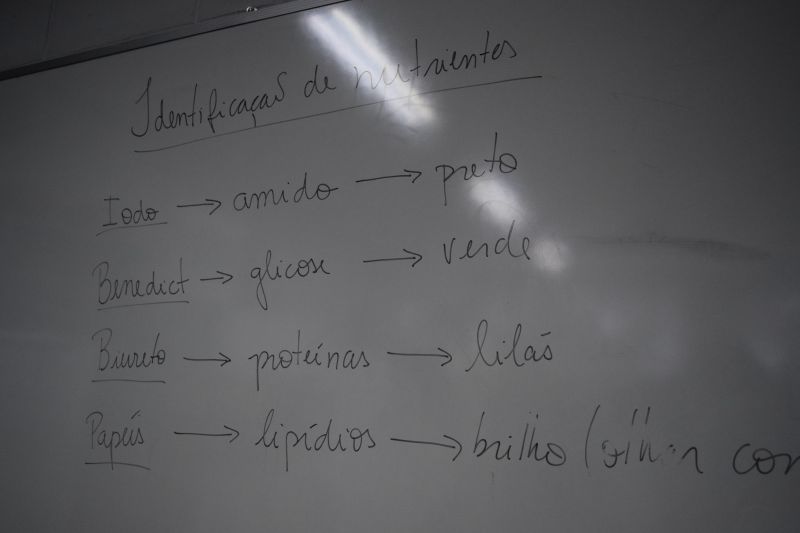 Identificação de nutrientes
Iodo → amido → preto
Benedict → glicose → verde
Biureto → proteínas → lilás
Papéis → lipídios → brilho (